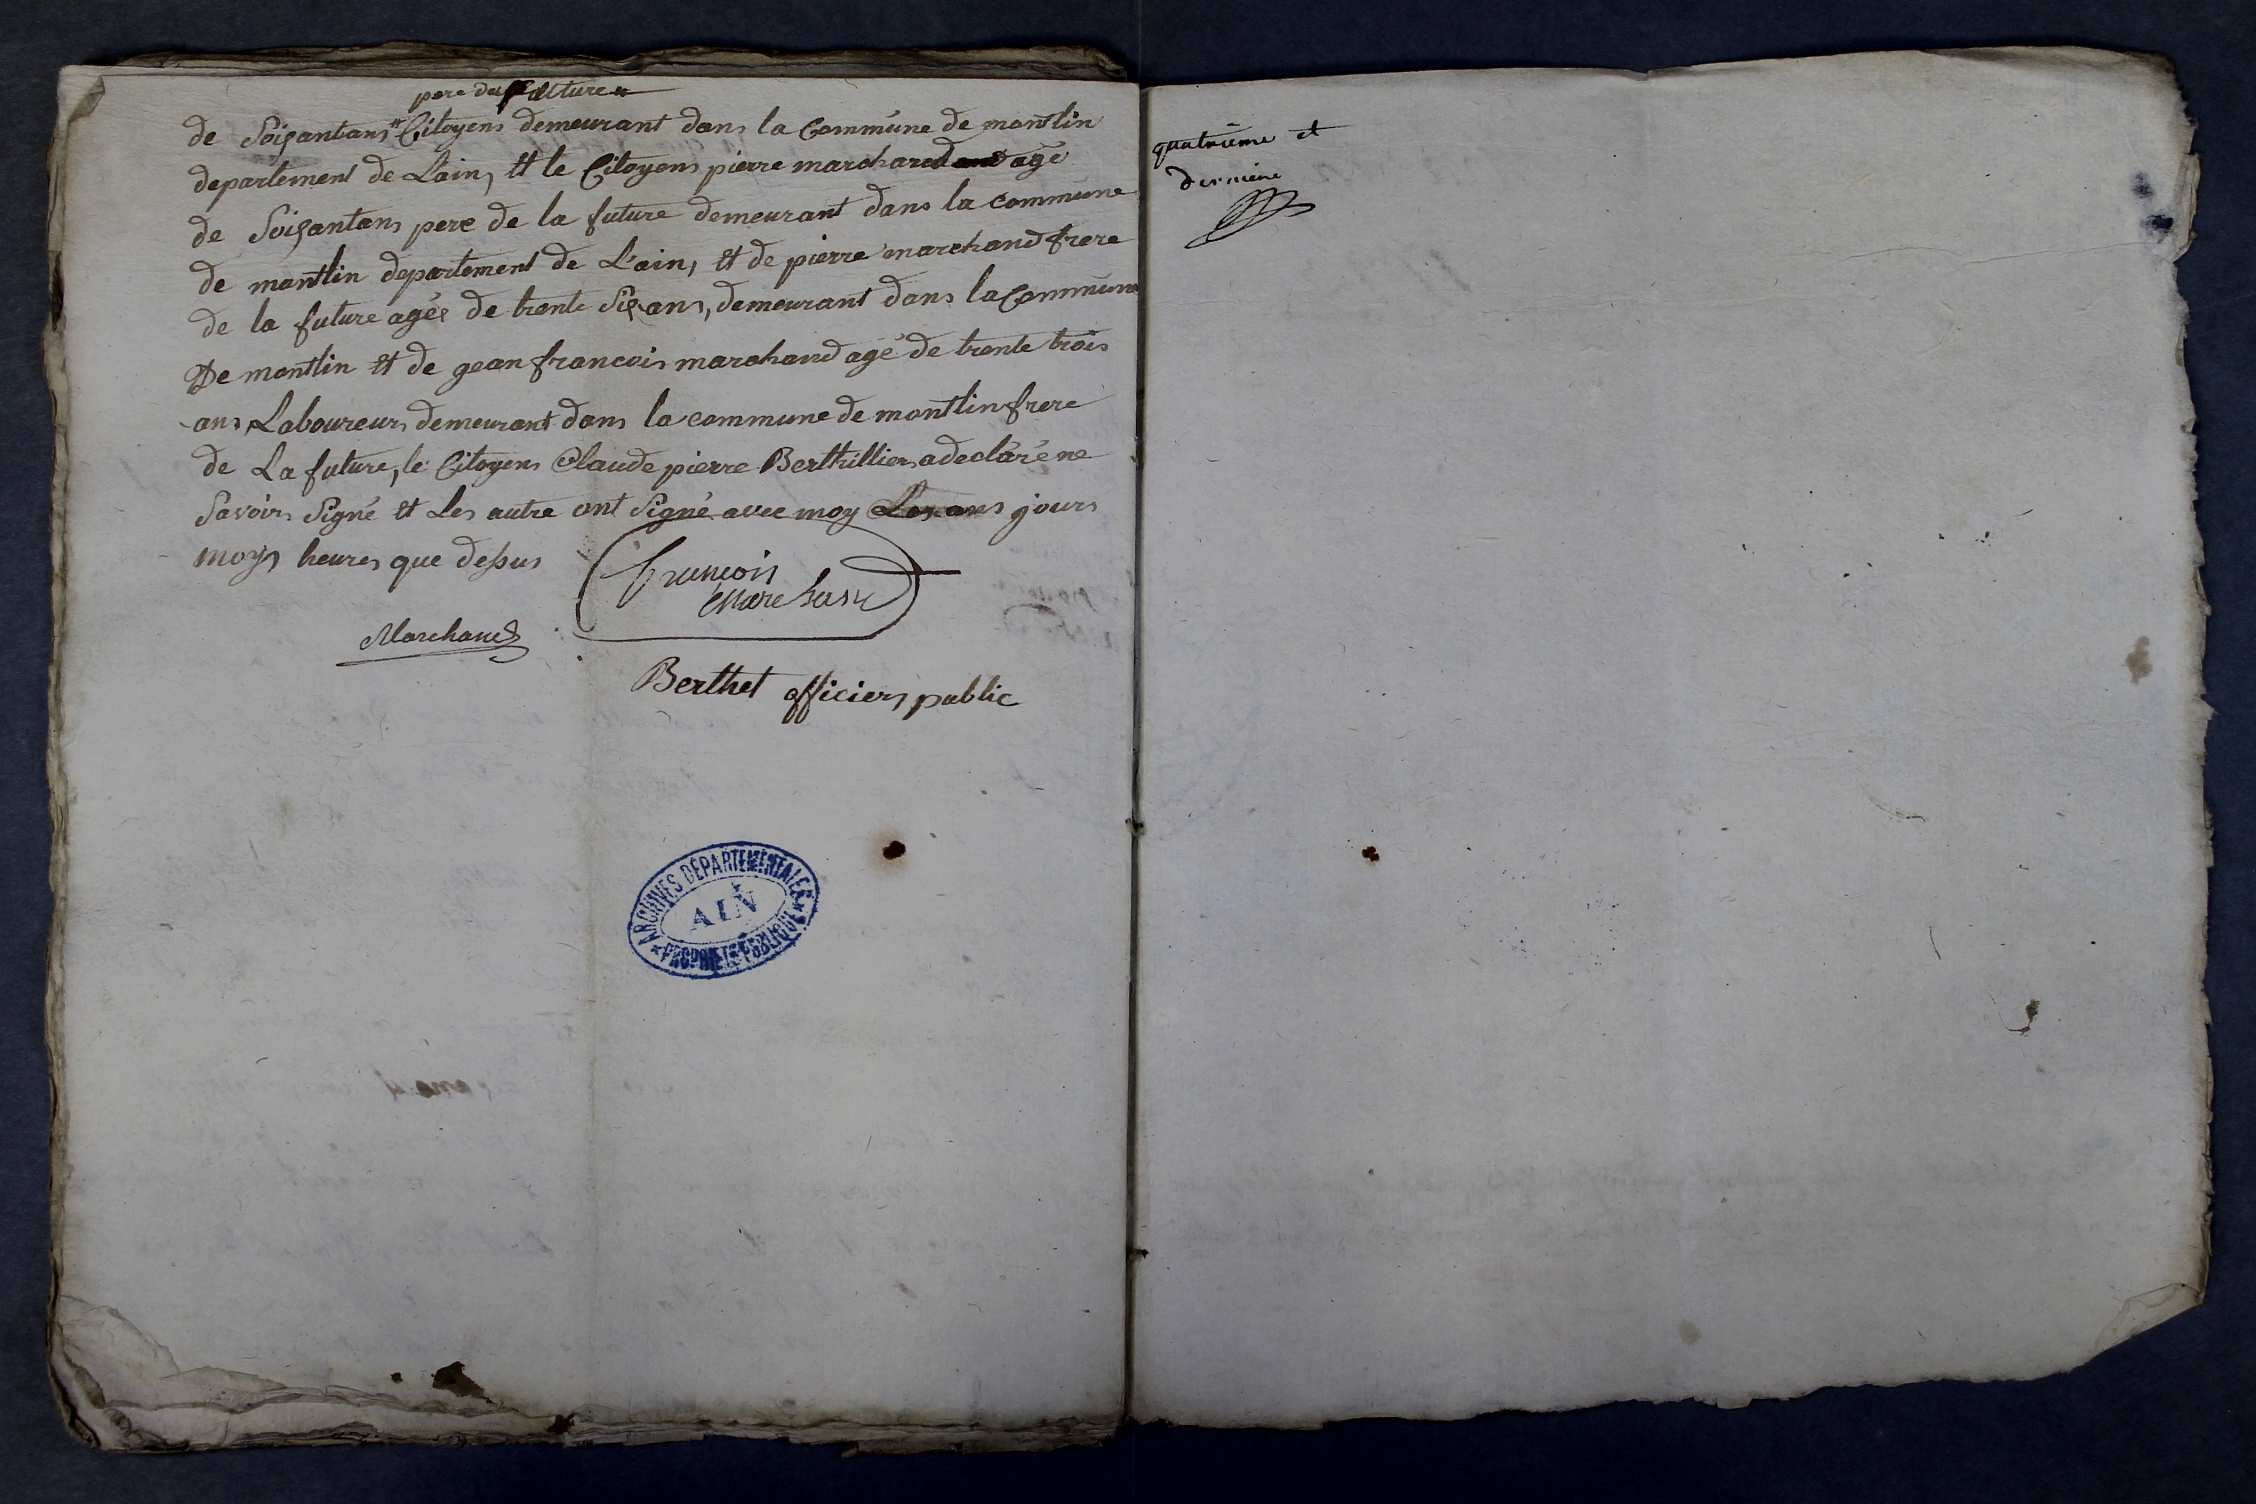 pere du future
de Soisantans * Citoyens demeurant dans la Commune de montlin
departement de Lain, et le Citoyens pierre marchand agé
de Soisantans pere de la future demeurant dans la commune
de montlin departement de L'ain, et de pierre marchand frere
de la future agés de trente Six ans, demeurant dans la Commune
De montlin et de gean francois marchand agé de trente trois
ans Laboureurs demeurant dans la commune de montlin frere
de La future, le Citoyens Claude pierre Berthilliers a declaré ne
Savoirs Signé et Les autre ont Signé avec moy Les ans jours
moys heures que dessus
françois
Marchand
Marchand
Berthet officiers public
ARCHIVES DÉPARTEMENTALES
AIN
PROPRIÉTÉ PUBLIQUE
quatrieme et
derniere